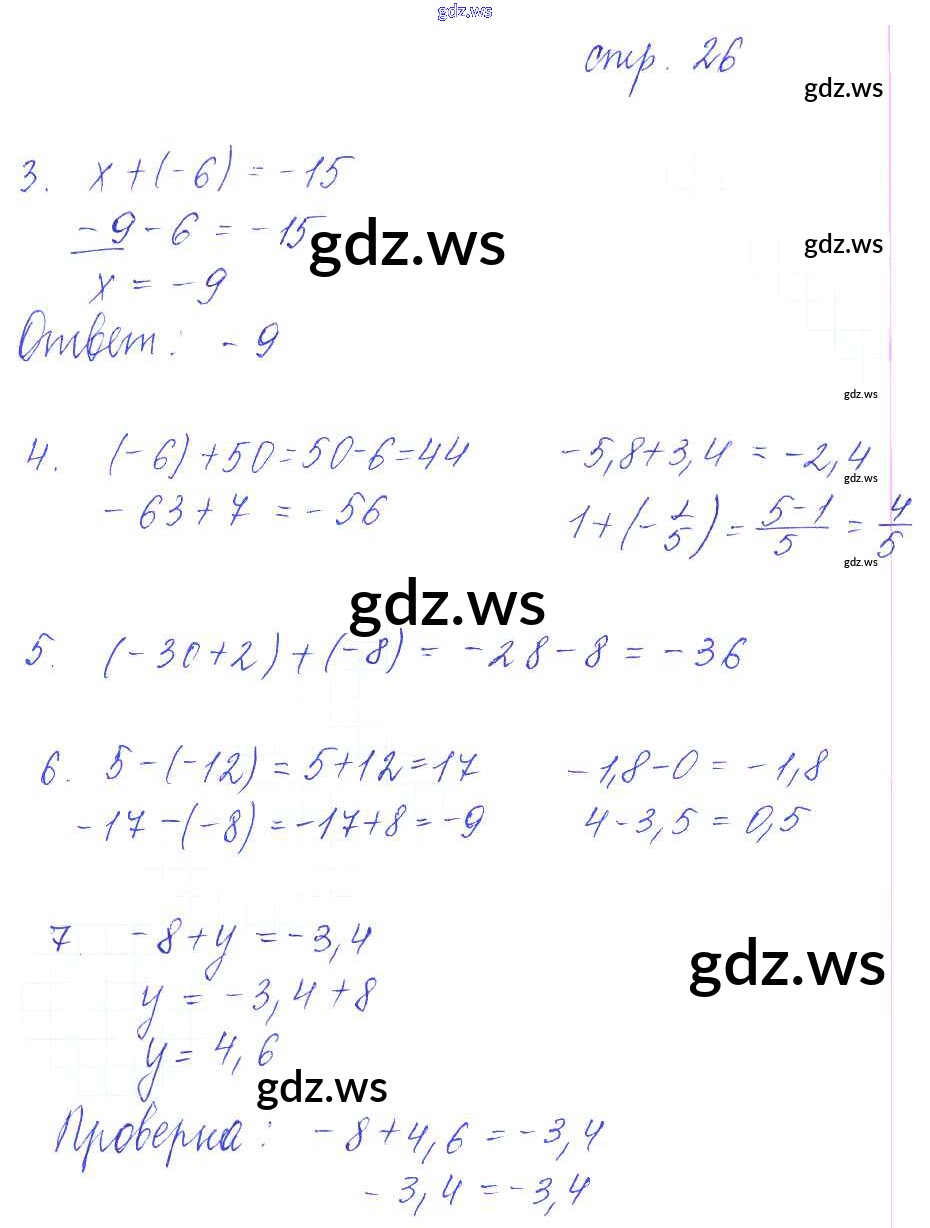 gdz.ws
стр. 26
gdz.ws
3. x + (-6) = -15
-9 - 6 = -15
gdz.ws
gdz.ws
x = -9
Ответ: -9
gdz.ws
4. (-6) + 50 = 50 - 6 = 44
-5,8 + 3,4 = -2,4
gdz.ws
-63 + 7 = -56
1 + (-1/5) = 5-1/5 = 4/5
gdz.ws
gdz.ws
5. (-30 + 2) + (-8) = -28 - 8 = -36
6. 5 - (-12) = 5 + 12 = 17
-1,8 - 0 = -1,8
-17 - (-8) = -17 + 8 = -9
4 - 3,5 = 0,5
7 -8 + y = -3,4
gdz.ws
y = -3,4 + 8
y = 4,6
gdz.ws
Проверка: -8 + 4,6 = -3,4
-3,4 = -3,4